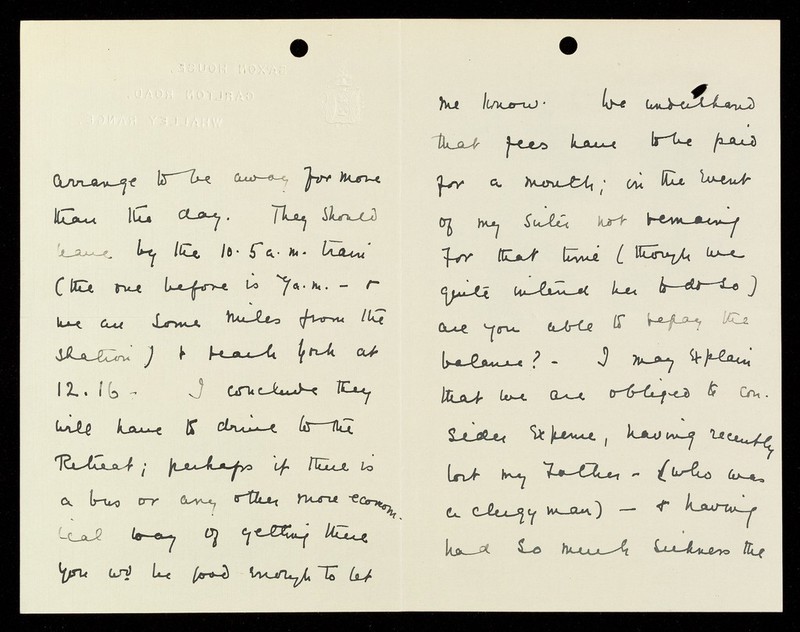 SAXON HOUSE,
CARLTON ROAD,
WHALLEY RANGE.
arrange to be away for more
than the day. They should
leave by the 10.5 a.m. train
(the one before is 7 a.m. - &
we are some miles from the
station) & reach York at
12.16 - I conclude they
will have to drive to the
Retreat; perhaps if there is
a bus or any other more econom-
ical way of getting there
you wd be good enough to let
me know. We understand
that fees have to be paid
for a month; in the event
of my sister not remaing
for that time (though we
quite intend her to do so)
are you able to repay the
balance? - I may explain
that we are obliged to con-
sider expense, having recently
lost my Father - (who was
a clergyman) - & having
had so much sickness the